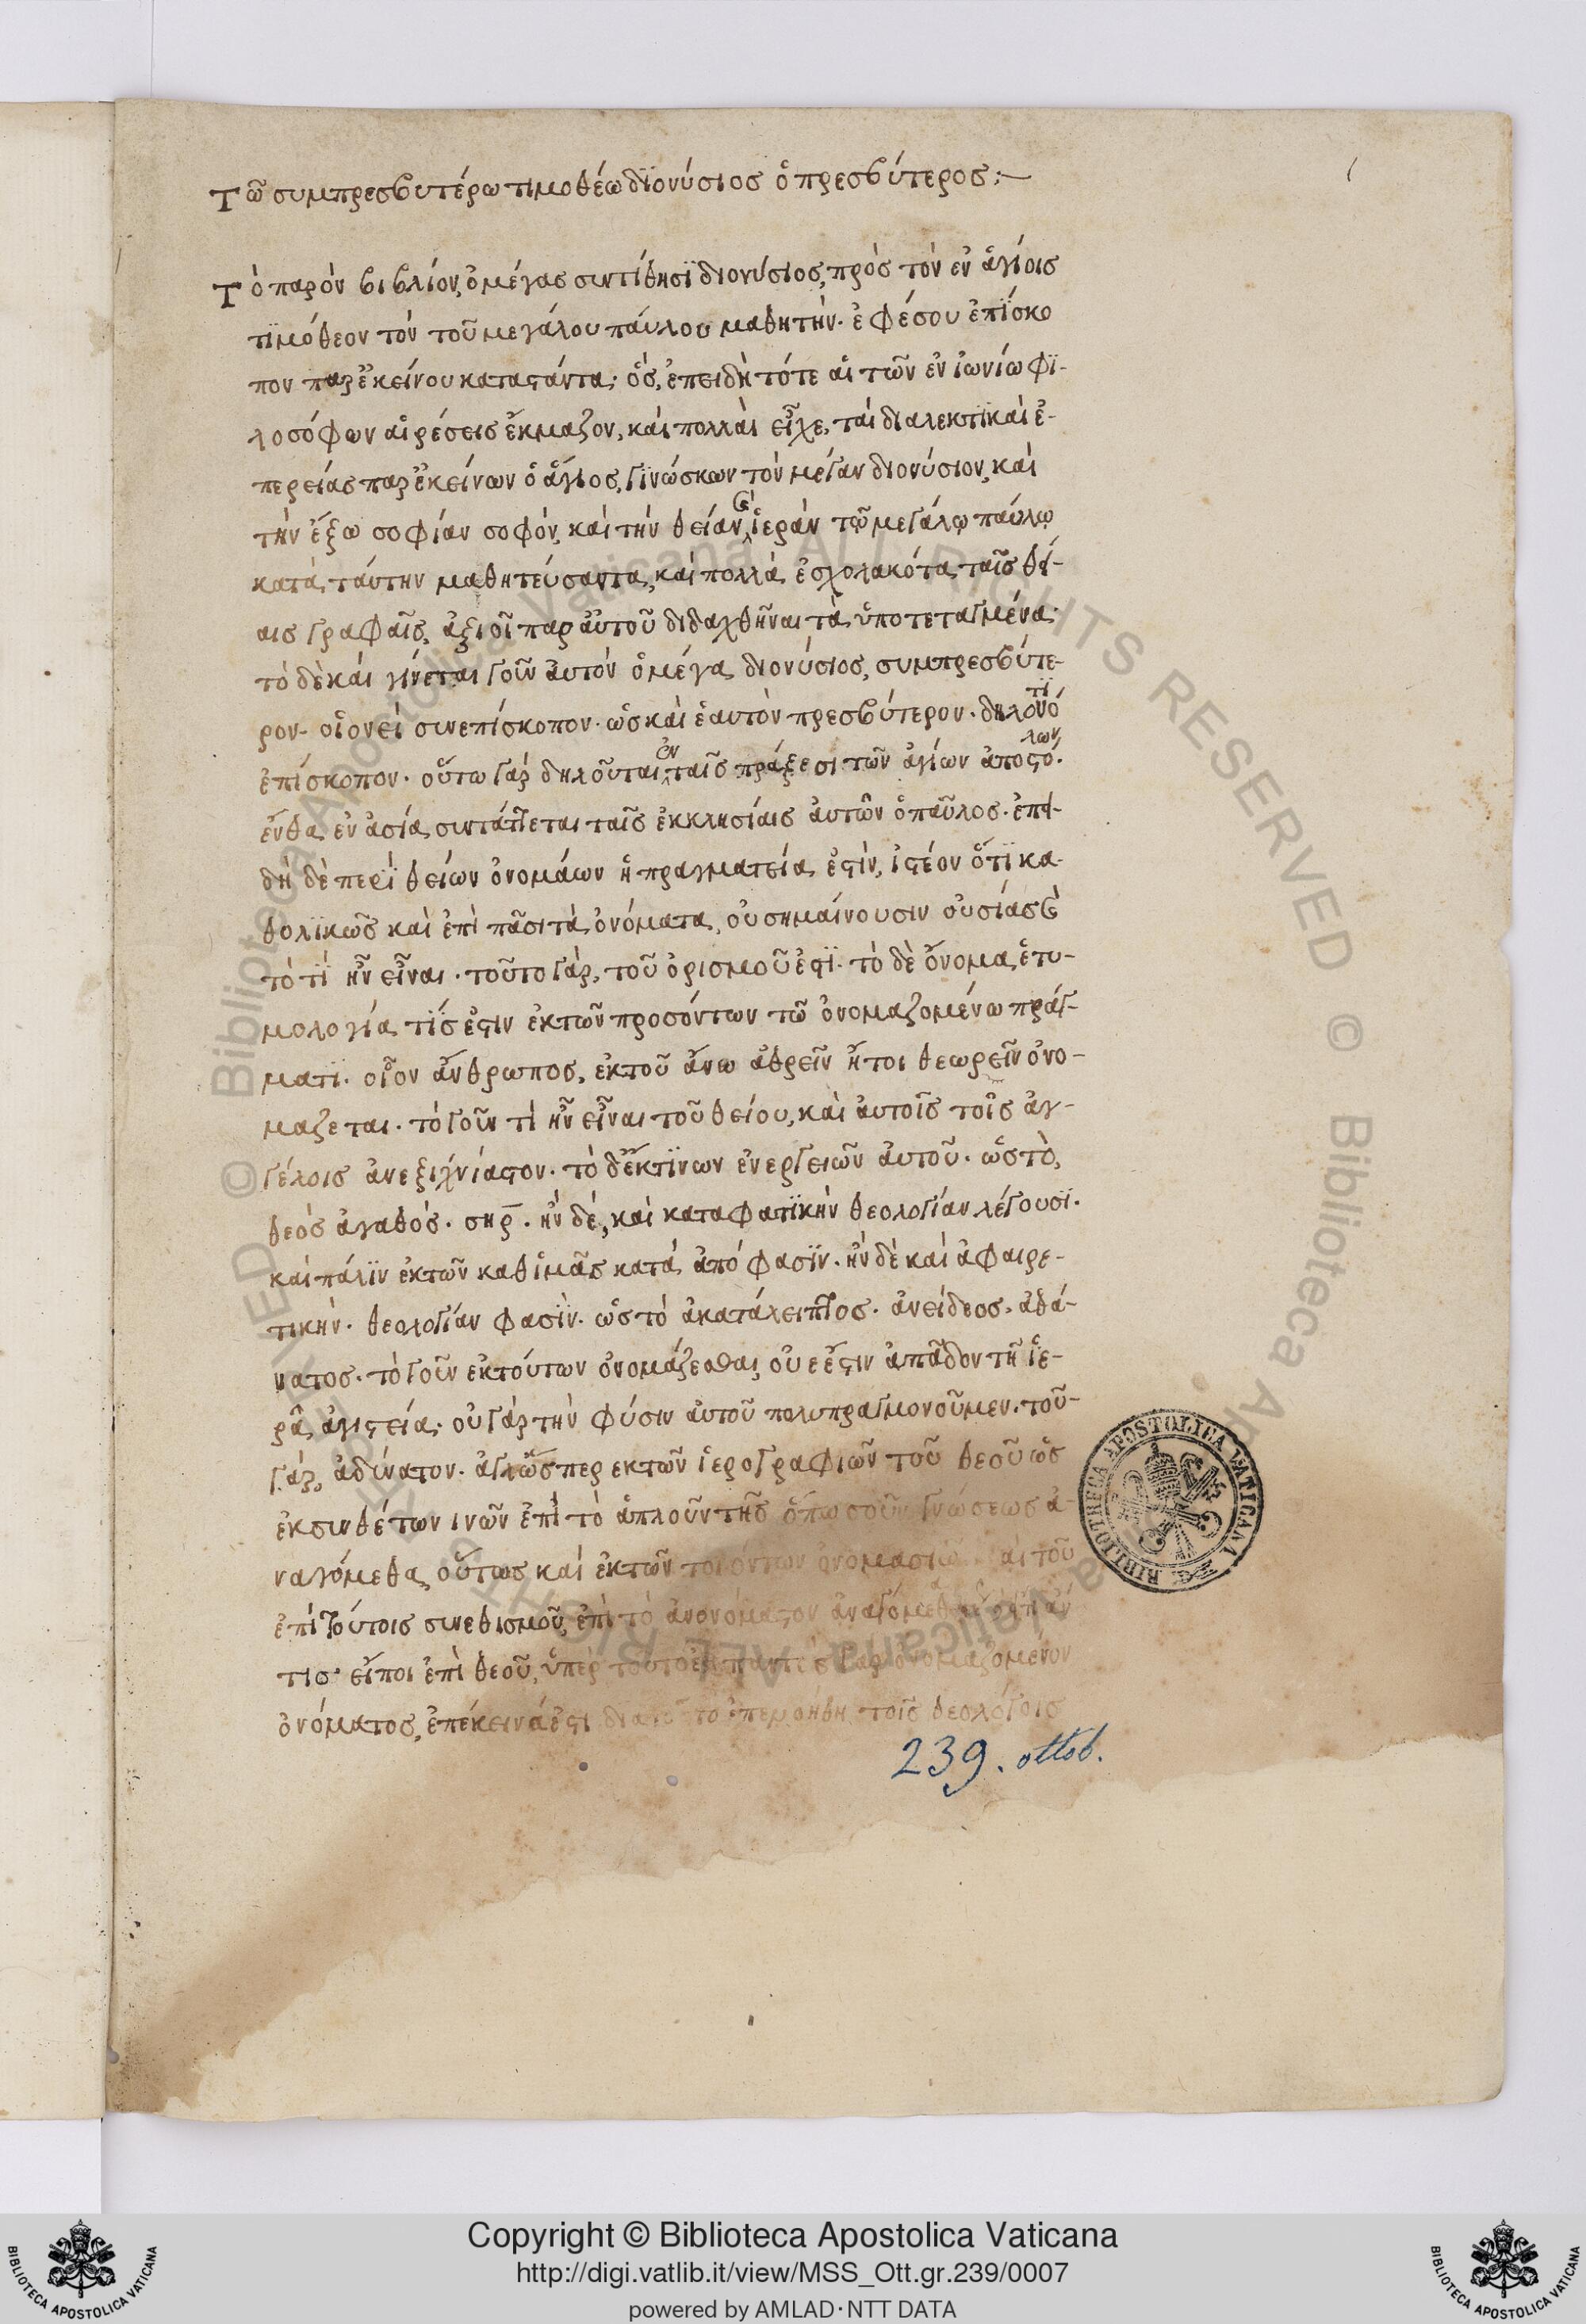 Τῶ συμπρεσβυτέρω τιμοθέω διονύσιος ὁ πρεσβύτερος:—
Τὸ παρὸν βιβλίον, ὁ μέγας συντίθησϊ διονύσιος, πρὸς τὸν ἐν ἁγίοις
τϊμόθεον τὸν τοῦ μεγάλου παύλου μαθητὴν. ἐφέσου ἐπίσκο
πον παρ ἐκείνου καταστάντα· ὃς, ἐπειδὴ τότε αἱ τῶν ἐν ἰωνίω φϊ-
λοσόφων αἱρέσεις ἤκμαζον, καὶ πολλὰι εἶχε, τὰι διαλεκτϊκαὶ ἐ-
περείας παρ ἐκείνων ὁ ἅγιος, γϊνώσκων τὸν μέγαν διονύσιον, καὶ
τὴν ἔξω σοφίαν σοφὸν, καὶ τὴν θείαν καὶ ἱερὰν τῷ μεγάλῳ παύλῳ
κατὰ ταύτην μαθητεύσαντα, καὶ πολλὰ ἐσχολακότα ταῖς θεί-
αις γραφαῖς, ἀξιοῖ παρ αὐτοῦ διδαχθῆναι τὰ ὑποτεταγμένα·
τὸ δὲ καὶ γίνεται γοῦν αὐτὸν ὁ μέγα διονύσιος, συμπρεσβύτε-
ρον. οἱονεὶ συνεπίσκοπον. ὡς καὶ ἑαυτὸν πρεσβύτερον. δηλονότϊ
ἐπίσκοπον. οὕτω γὰρ δηλοῦται ἐν ταῖς πράξεσι τῶν ἁγίων ἀποστόλων.
ἔνθα ἐν ἀσία συντάττεται ταῖς ἐκκλησίαις αὐτῶν ὁ παῦλος. ἐπει-
δὴ δὲ περὶ θείων ὀνομάων ἡ πραγματεία ἐστὶν, ἰστέον ὅτϊ κα-
θολϊκῶς καὶ ἐπὶ πᾶσι τὰ ὀνόματα, οὐ σημαίνουσιν οὐσίας καὶ
τὸ τϊ ἦν εἶναι. τοῦτο γὰρ, τοῦ ὁρισμοῦ ἐστϊ. τὸ δὲ ὄνομα, ἐτυ-
μολογία τίς ἐστιν ἐκ τῶν προσόντων τῶ ὀνομαζομένω πράγ-
ματϊ. οἷον ἄνθρωπος, ἐκ τοῦ ἄνω ἀθρεῖν ἤτοι θεωρεῖν ὀνο-
μαζεται. τὸ γοῦν τὶ ἦν εἶναι τοῦ θείου, καὶ αὐτοῖς τοῖς ἀγ-
γέλοις ἀνεξιχνίαστον. τὸ δ' ἔκ τϊνων ἐνεργειῶν αὐτοῦ. ὡς τὸ,
θεὸς ἀγαθὸς. σηρ. ἣν δὲ, καὶ καταφατϊκὴν θεολογίαν λέγουσϊ.
καὶ πάλϊν ἐκ τῶν καθ ἱμᾶς κατὰ ἀπόφασϊν. ἣν δὲ καὶ ἀφαιρε-
τικὴν. θεολογίαν φασϊν. ὡς τὸ ἀκατάλειπτος. ἀνείδεος. ἀθά-
νατος. τὸ γοῦν ἐκ τούτων ὀνομάζεσθαι, οὐ ε ἔστιν ἀπᾶδον τῆ ἱε-
ρᾶ ἁγιστεία· οὐ γὰρ τὴν φύσιν αὐτοῦ πολυπραγμονοῦμεν. τοῦ-
γὰρ, ἀδύνατον. ἀλλ' ὥσπερ ἐκ τῶν ἱερογραφιῶν τοῦ θεοῦ ὡς
ἐκ συνθέτων ινῶν ἐπὶ τὸ ἁπλοῦν τῆς ὁπωσοῦν γνώσεως ἀ-
ναγόμεθα, οὕτως καὶ ἐκ τῶν τοιούτων ὀνομασιῶν καὶ τοῦ
ἐπὶ τούτοις συνεθισμοῦ, ἐπὶ τὸ ἀνονόμαστον ἀναγόμεθα
τις εἴποι ἐπὶ θεοῦ, ὑπὲρ τοῦτο γὰρ ὀνομαζόμενον
ὀνόματος, ἐπέκεινά ἐστι διατοῦτο τοῖς θεολόγοις
239. ottob.
BIBLIOTHECA APOSTOLICA VATICANA
© Biblioteca Apostolica Vaticana ALL RIGHTS RESERVED © Biblioteca Apostolica Vaticana ALL RIGHTS RESERVED
Copyright © Biblioteca Apostolica Vaticana
http://digi.vatlib.it/view/MSS_Ott.gr.239/0007
powered by AMLAD·NTT DATA
BIBLIOTECA APOSTOLICA VATICANA
BIBLIOTECA APOSTOLICA VATICANA